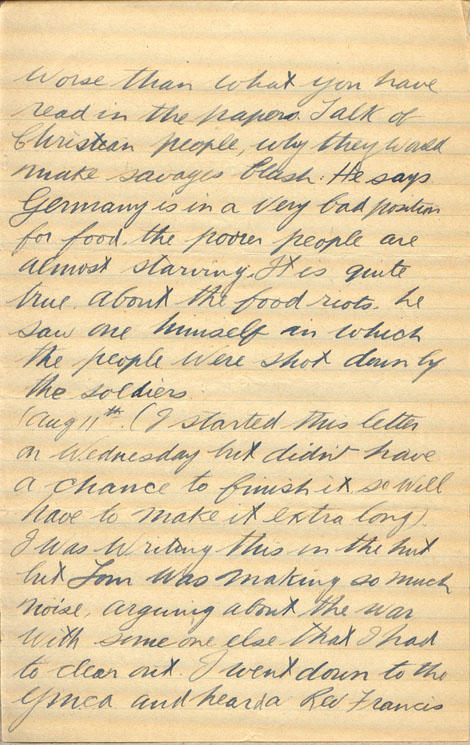 Worse than what you have
read in the papers. Talk of
Christian people, why they would
make savages blush. He says
Germany is in a very bad position
for food. the poorer people are
almost starving. It is quite
true. about the food riots. he
saw one himself in which
the people were shot down by
the soldiers
(Aug 11th. (I started this letter
on Wednesday but didn't have
a chance to finish it so will
have to make it extra long).
I was writing this in the hut
but Tom was making so much
noise, arguing about the war
with some one else that I had
to clear out. I went down to the
Ymca and heard a Rev Francis